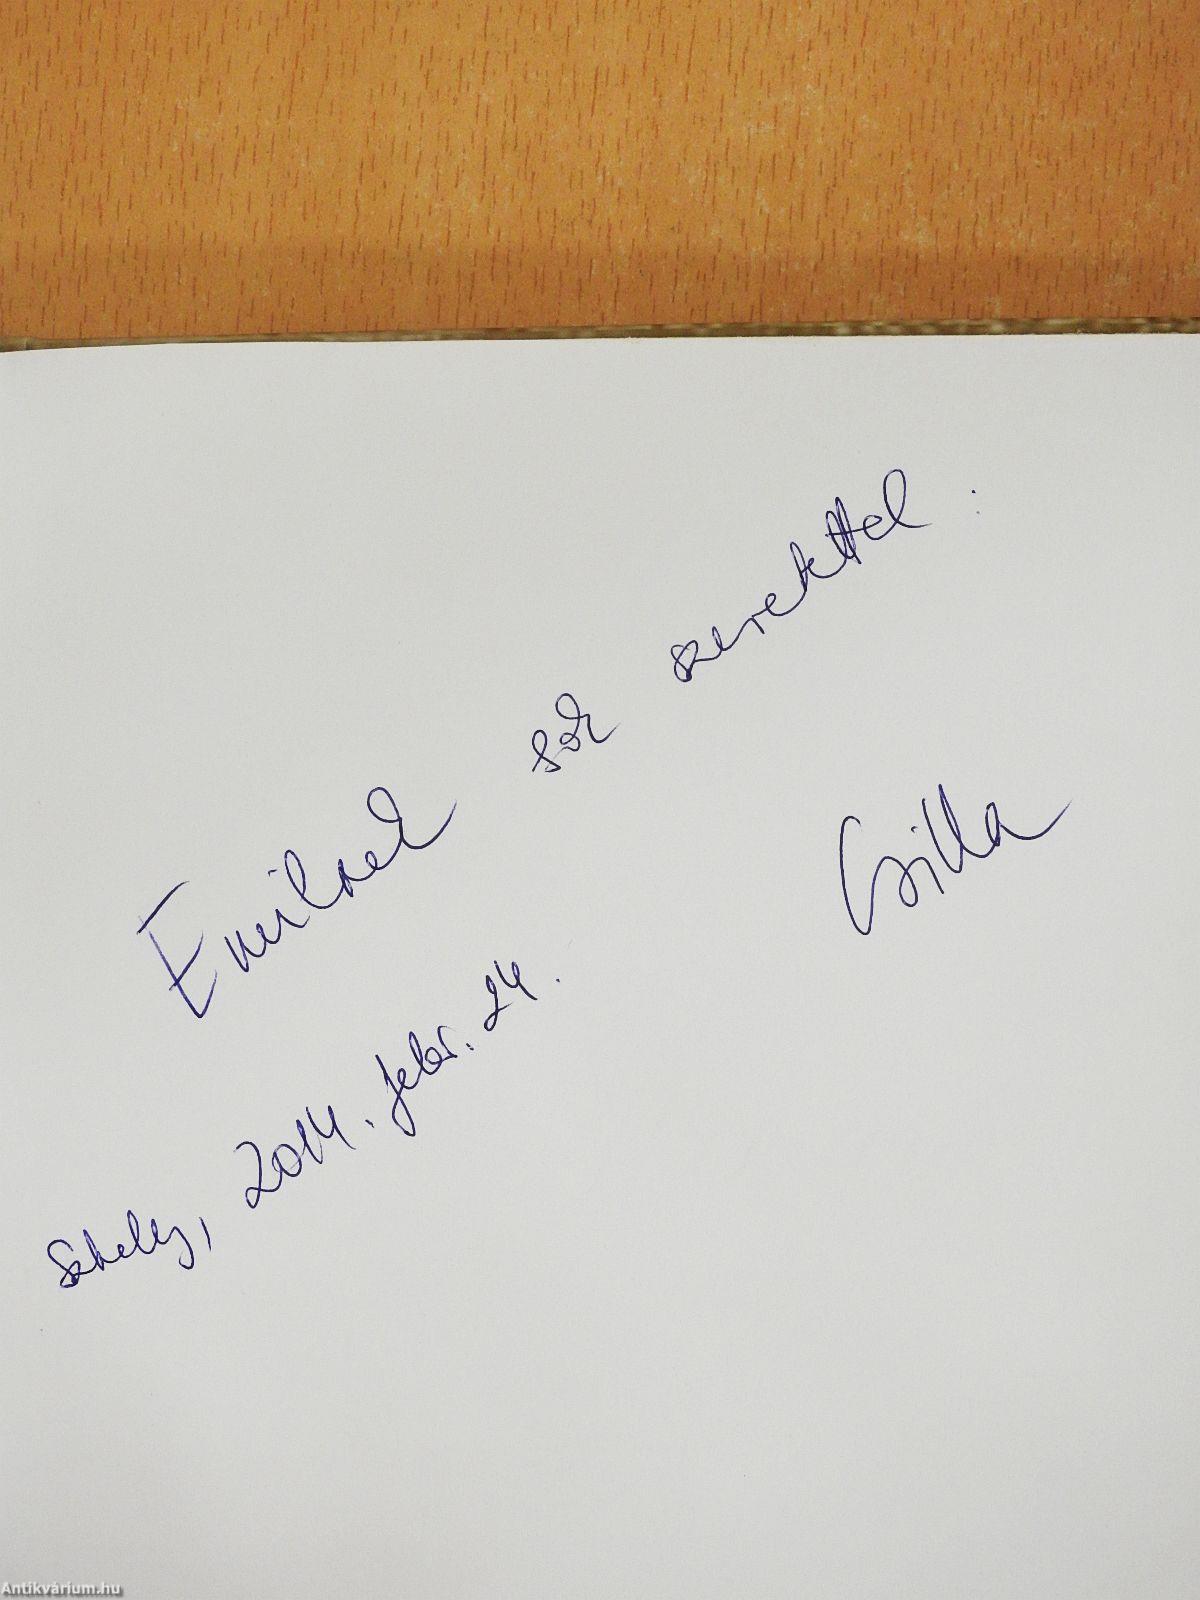 Emilnek sok szeretettel:
Csilla
Szhely, 2014. febr. 24.
Antikvárium.hu